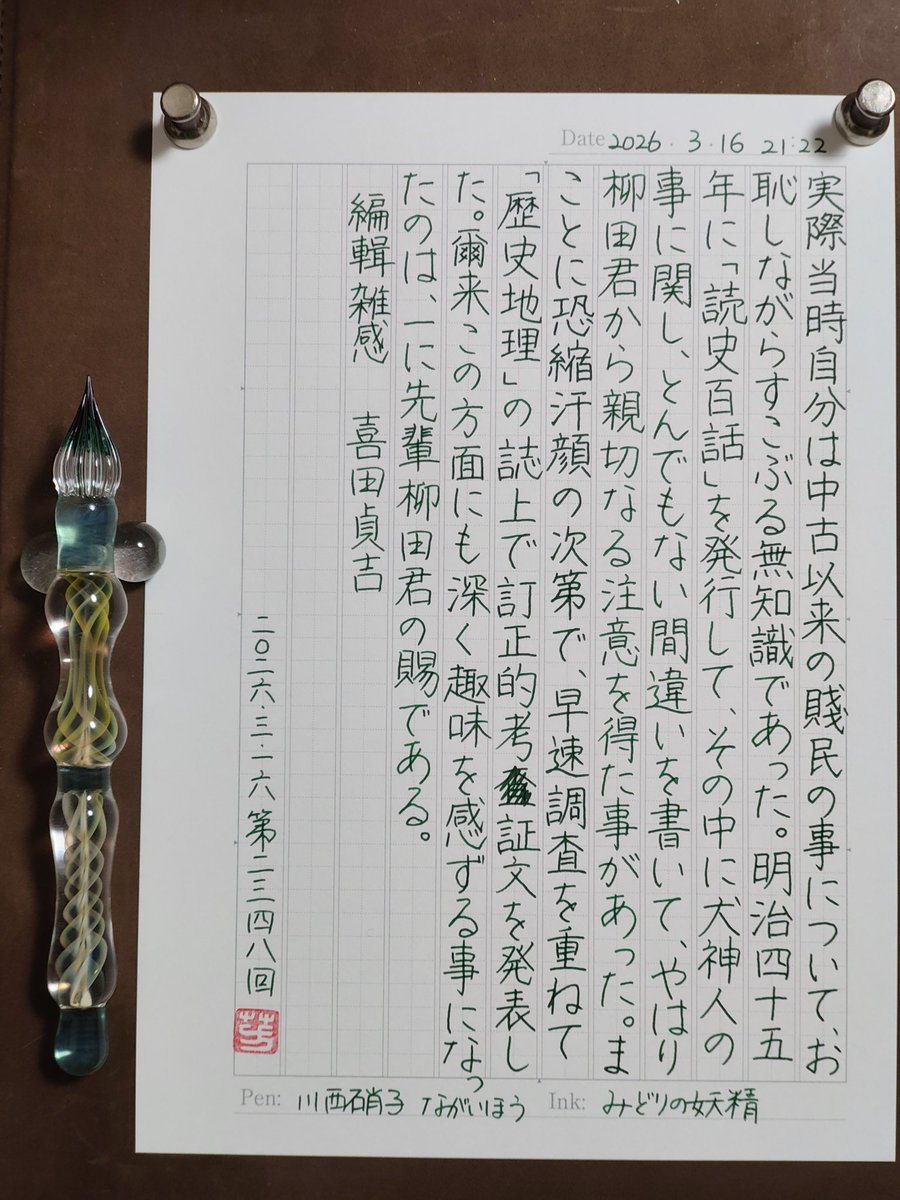 Date 2026.3.16 21:22
実際当時自分は中古以来の賤民の事について、お
恥しながらすこぶる無知識であった。明治四十五
年に「読史百話」を発行して、その中に犬神人の
事に関し、とんでもない間違いを書いて、やはり
柳田君から親切なる注意を得た事があった。ま
ことに恐縮汗顔の次第で、早速調査を重ねて
「歴史地理」の誌上で訂正的考証文を発表し
た。爾来この方面にも深く趣味を感ずる事になっ
たのは、一に先輩柳田君の賜である。
編輯雑感 喜田貞吉
二〇二六・三・一六 第二三四八回
Pen: 川西硝子 ながいほう Ink: みどりの妖精